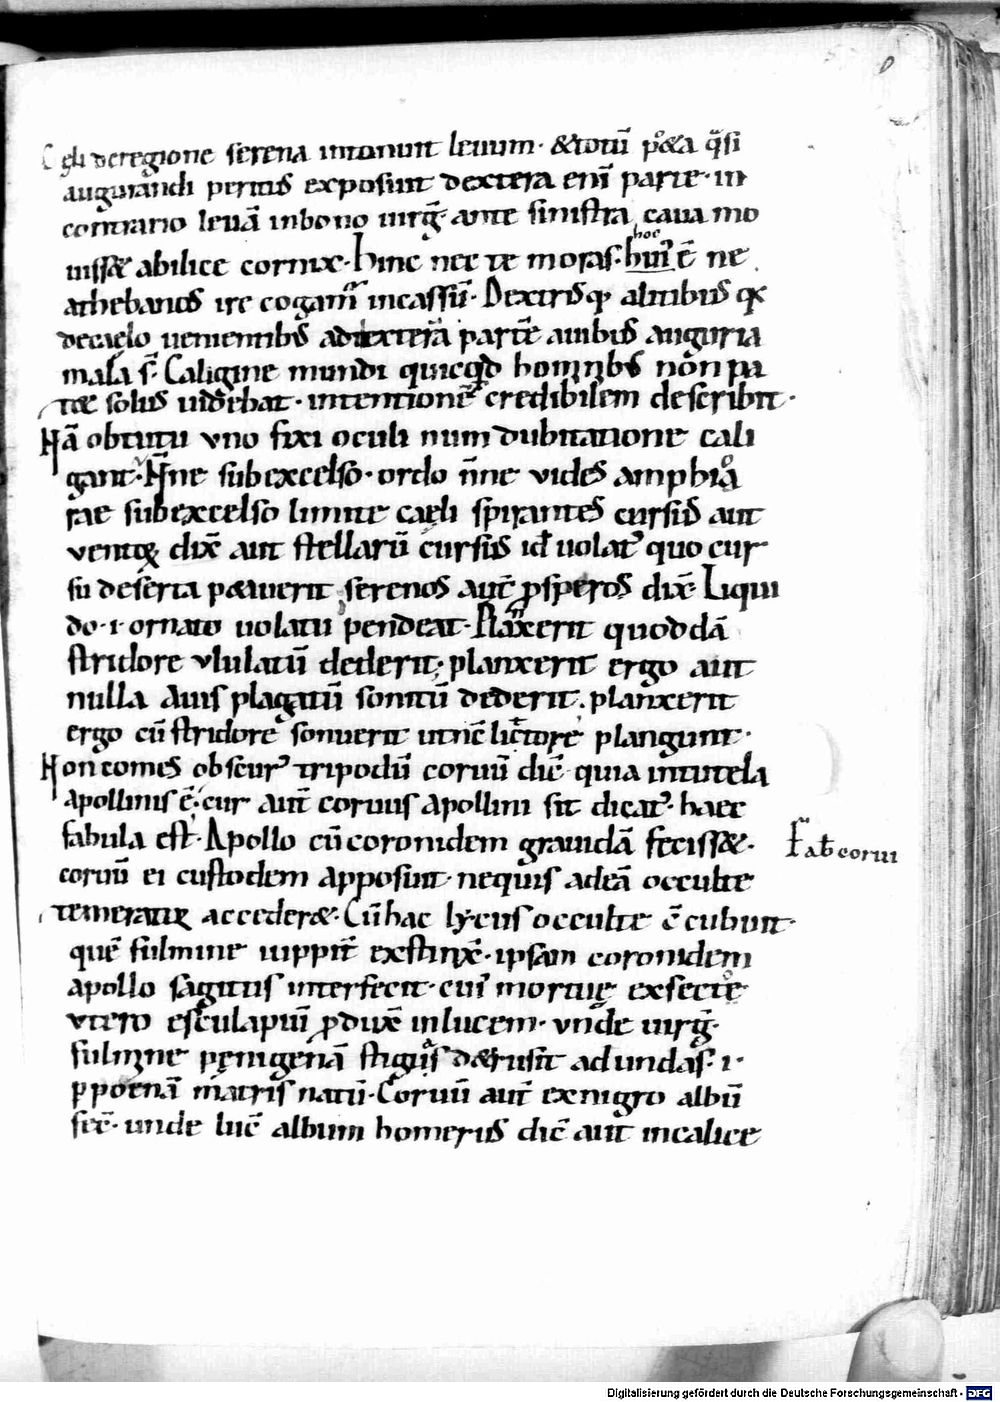 Cęli deregione serena intonuit leuum· &totū põ&a q̃si
augurandi peritus exposuit dextera enī parte· in
contrario leuā inbono uirg̃· ante sinistra caua mo
hoc
nuiss& abilice cornix· hinc nec te moras· huiꝰ ē ne
athebanos ire cogamꝰ incassū· Dextrisq; alitibus q;
decaelo uenientibus addexterā partē auibus auguria
mala s̄· Caligine mundi quicq̇d hominibus non pa
t& solus uidebat· intentionē credibilem describit·
Nā obtutu uno fixi oculi num dubitatione cali
gant· Nn̄e subexcelso· ordo n̄ne uides amphiͦa
rae subexcelso limite caeli spirantes cursus aut
ventoꝝ dix̄ aut stellarū cursus id uolatꝰ quo cur
su deserta p&iuerit serenos aut̄ ꝓsperos dix̄· Liqui
do· i· ornato uolatu pendeat· Planxerit quoddā
stridore ululatū dederit; planxerit ergo aut
nulla auis plagitū sonitū dederit· planxerit
ergo cū stridore sonuerit ut nc̄ lictore plangunt·
Non comes obscurꝰ tripodū coruū dic̄ quia intutela
apollinis ē· cur aut̄ coruus apollini sit dicatꝰ· haec
fabula est· Apollo cū coronidem grauidā feciss&·
coruū ei custodem apposuit· nequis adeā occulte
temeratur acceder&· Cū hac lycus occulte c̄cubuit·
quē fulmine iuppit̄ exstinx̄· ipsam coronidem
apollo sagittis interfecit· cuiꝰ mortuę exsectͦe
vtero esculapiū ꝓduxē inlucem· vnde uirg̃·
fulmine pęnigenā stigiis d&rusit adundas· i·
p poenā matris natū· Coruū aut̄ exnigro albū
fec̄· unde luc̄ album homerus dic̄ aut incalice
Fab corui
Digitalisierung gefördert durch die Deutsche Forschungsgemeinschaft - DFG